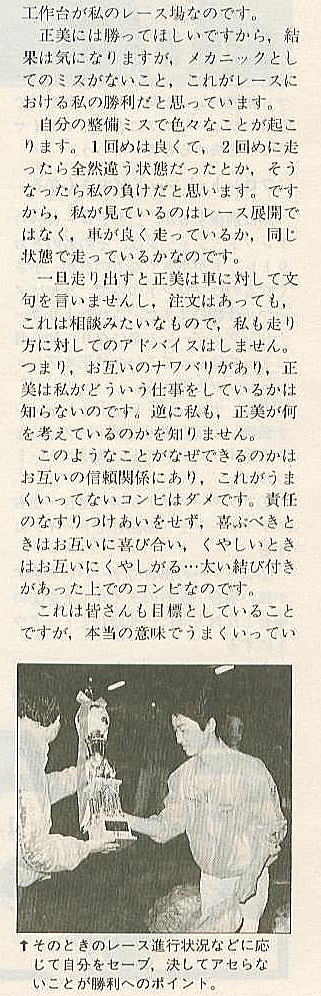 工作台が私のレース場なのです。
　正美には勝ってほしいですから，結
果は気になりますが，メカニックとし
てのミスがないこと，これがレースに
おける私の勝利だと思っています。
　自分の整備ミスで色々なことが起こ
ります。1回めは良くて，2回めに走
ったら全然違う状態だったとか，そう
なったら私の負けだと思います。です
から，私が見ているのはレース展開で
はなく，車が良く走っているか，同じ
状態で走っているかなのです。
　一旦走り出すと正美は車に対して文
句を言いませんし，注文はあっても，
これは相談みたいなもので，私も走り
方に対してのアドバイスはしません。
つまり，お互いのナワバリがあり，正
美は私がどういう仕事をしているかは
知らないのです。逆に私も，正美が何
を考えているのかを知りません。
　このようなことがなぜできるのかは
お互いの信頼関係にあり，これがうま
くいってないコンビはダメです。責任
のなすりつけあいをせず，喜ぶべきと
きはお互いに喜び合い，くやしいとき
はお互いにくやしがる…太い結び付き
があった上でのコンビなのです。
　これは皆さんも目標としていること
ですが，本当の意味でうまくいってい
↑そのときのレース進行状況などに応
じて自分をセーブ，決してアセらな
いことが勝利へのポイント。